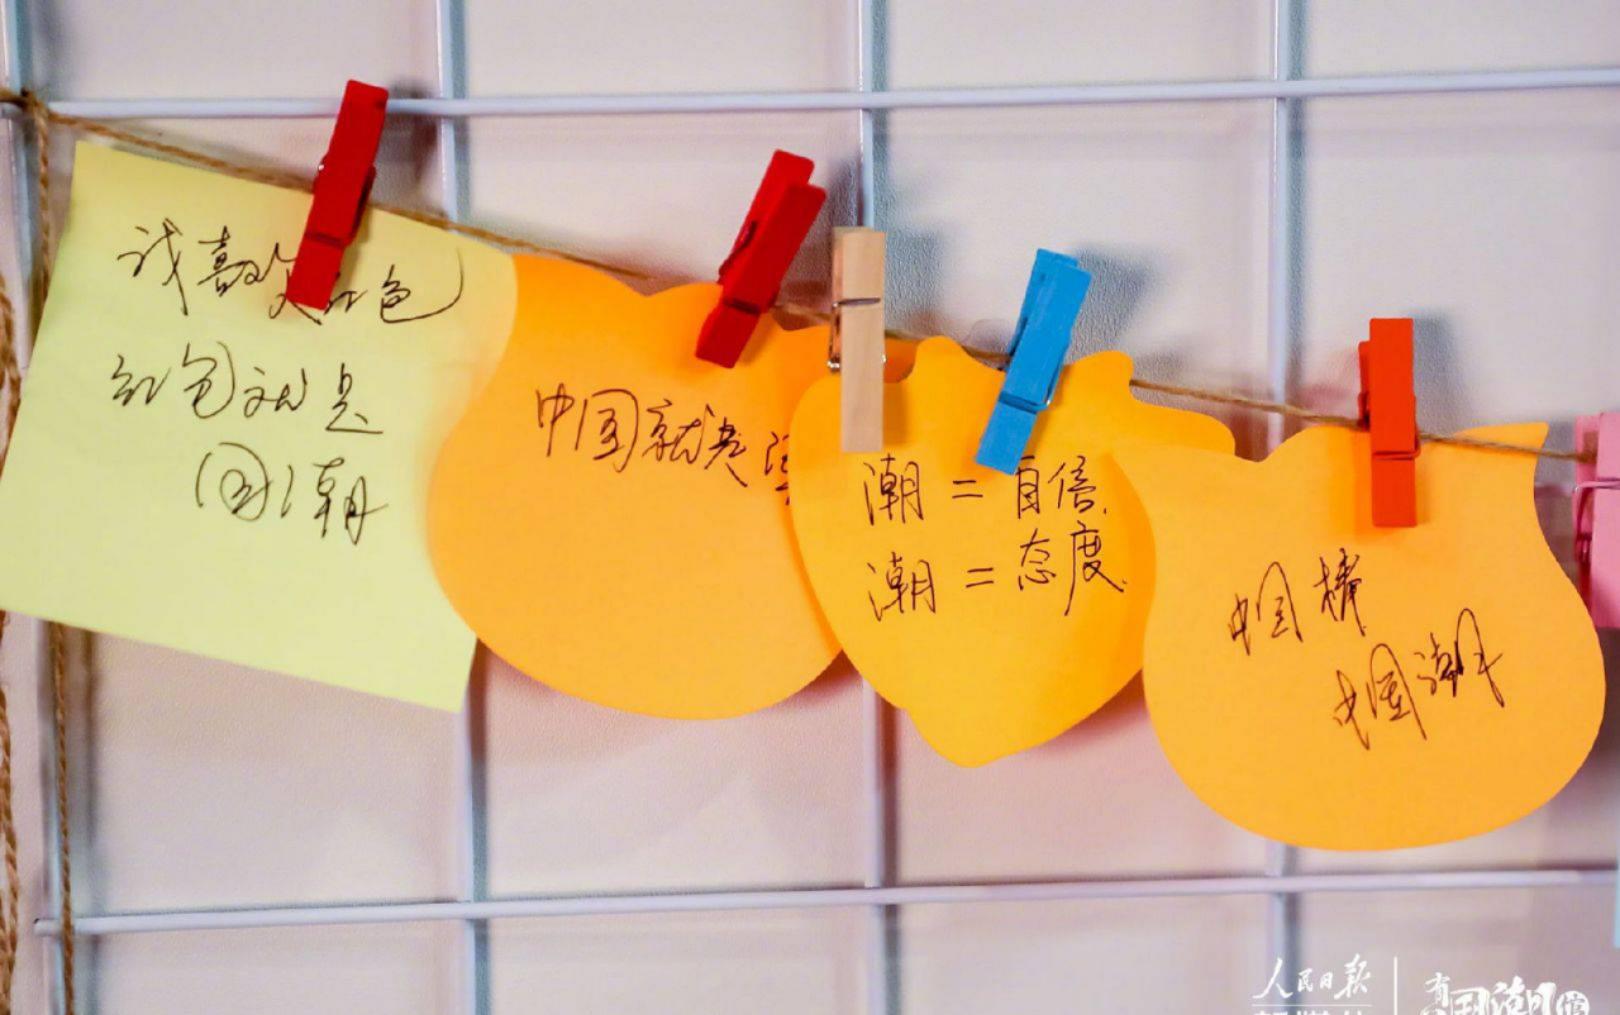 我喜欢红色
红色就是
国潮
中国就是
潮 = 自信
潮 = 态度
中国棒
中国潮
人民日报
有国潮